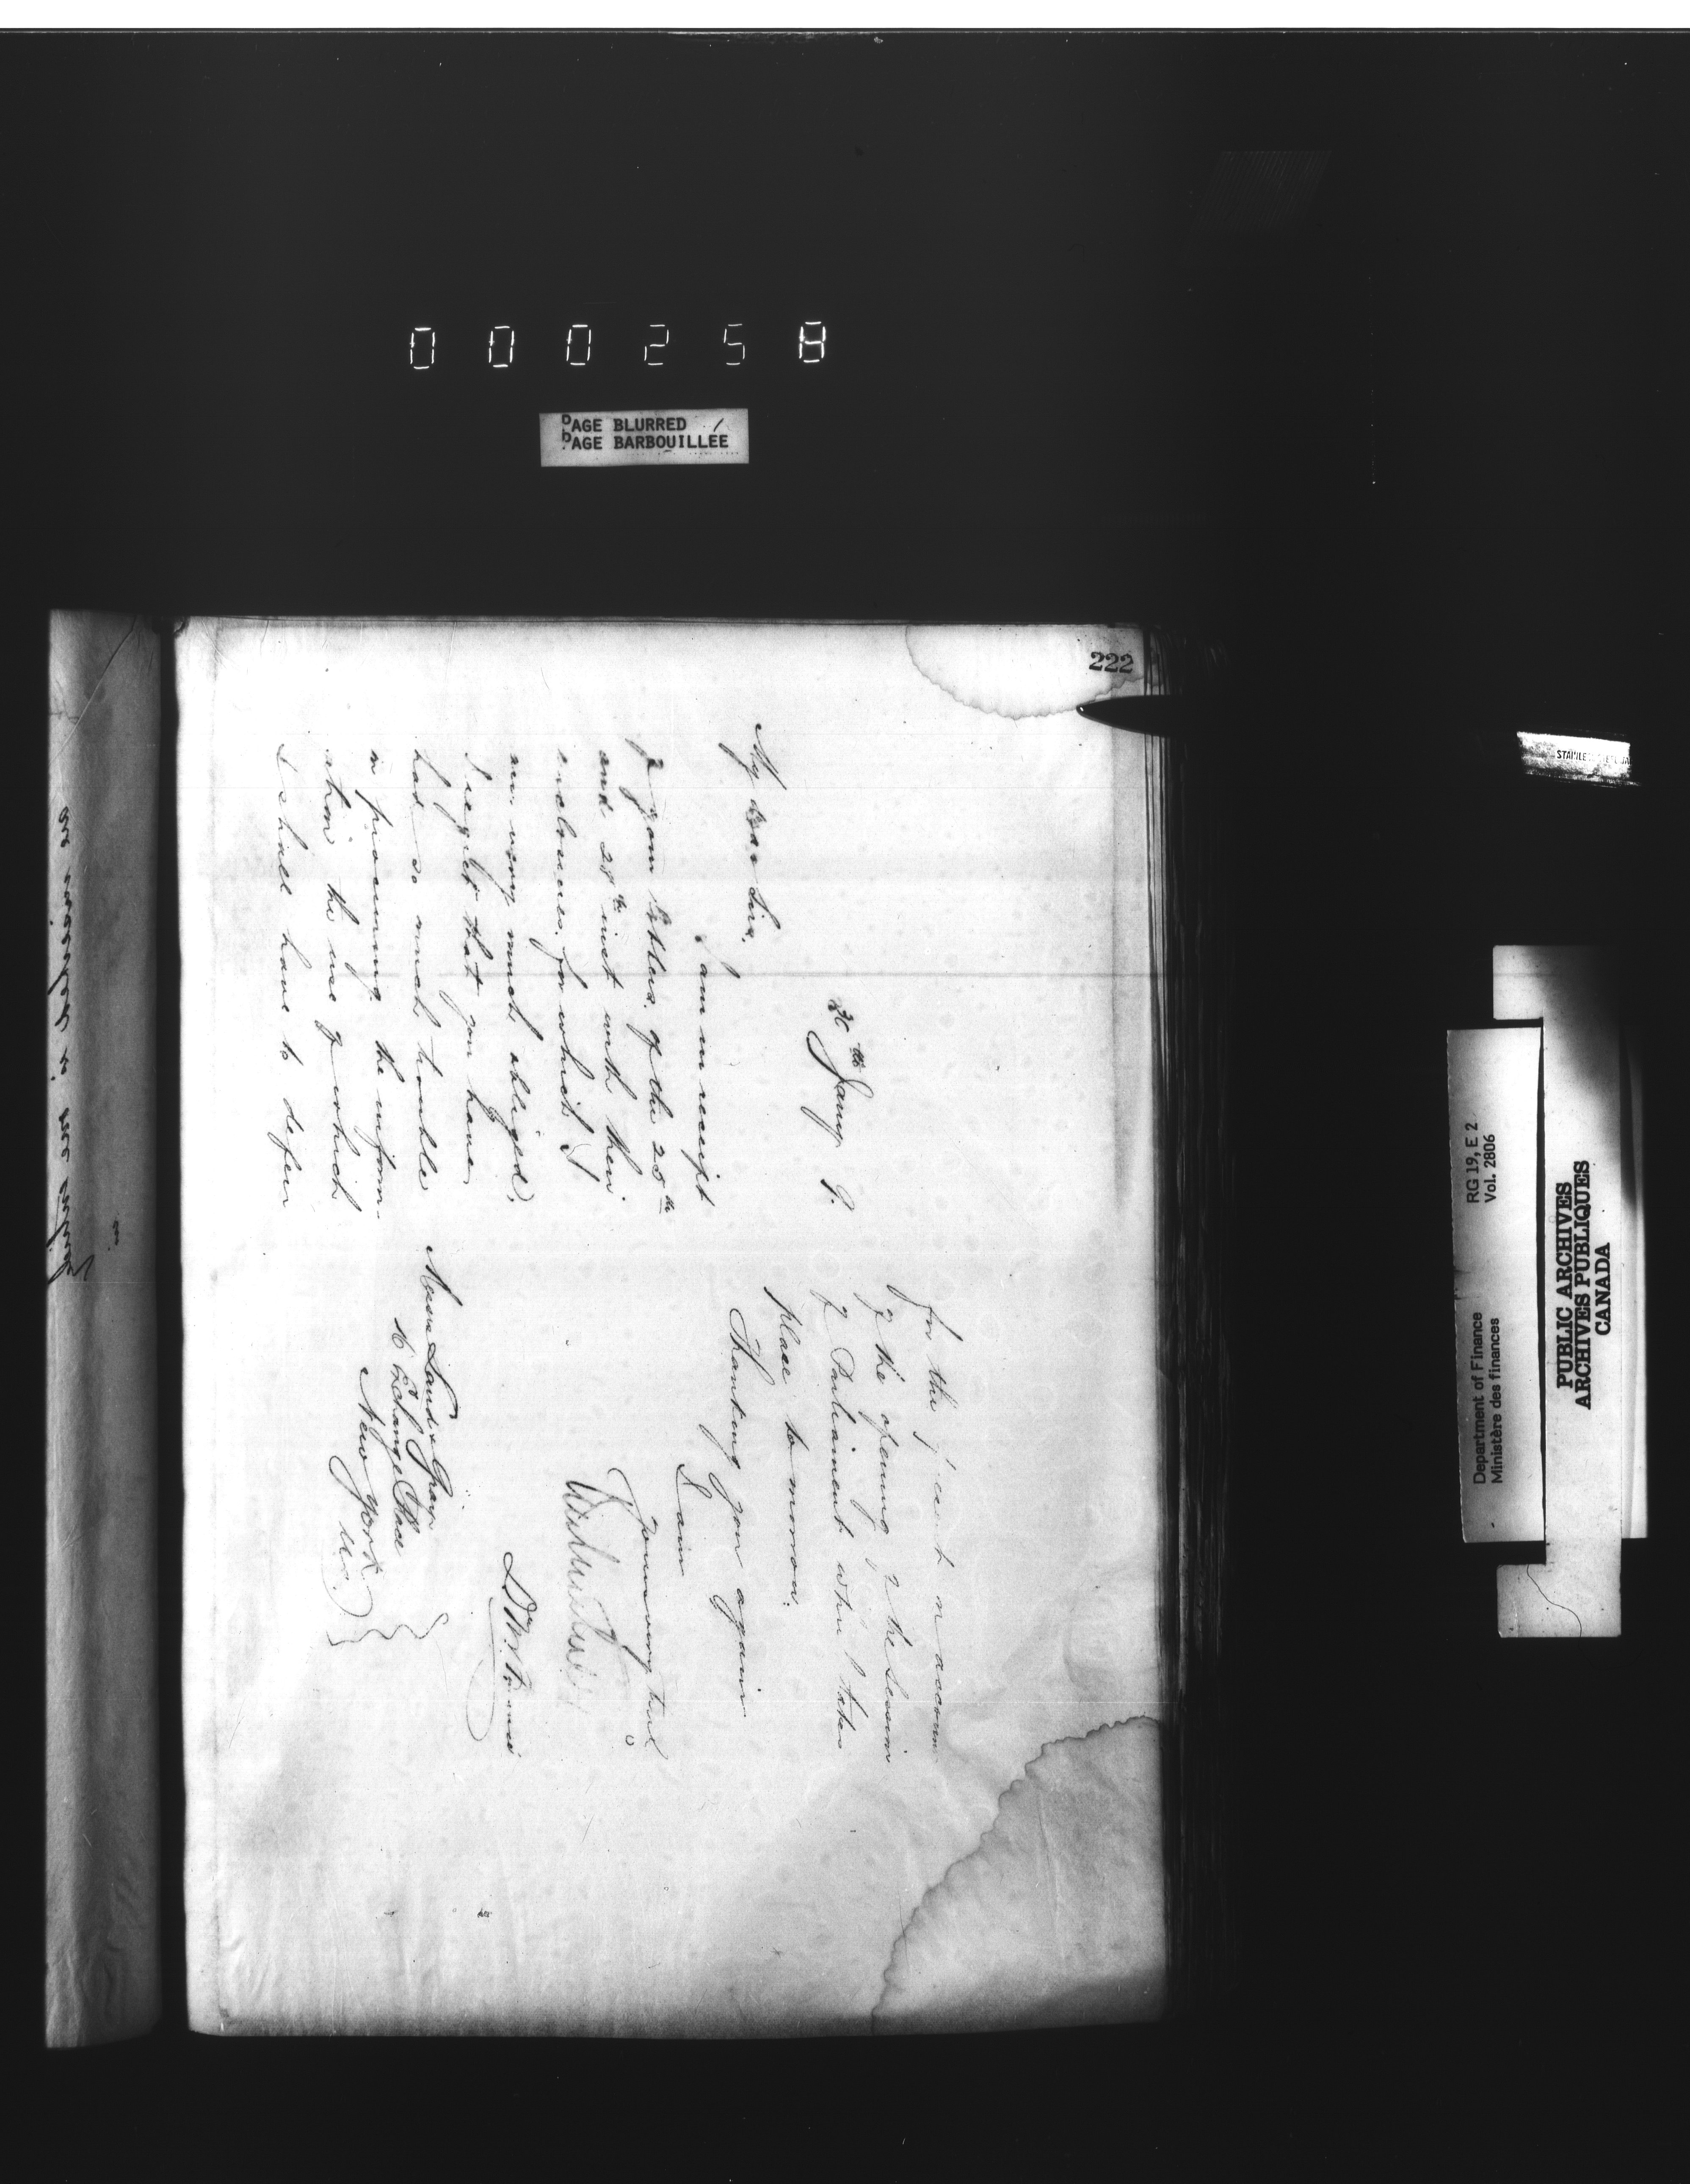 000258
PAGE BLURRED
PAGE BARBOUILLÉE
222
30th Jany 9.
My dear Sirs,
I am in receipt
of your letters of the 25th
and 28th inst with their
enclosures for which I
am very much obliged.
I regret that you have
had so much trouble
in procuring the inform-
ation the use of which
I shall have to defer
for the
of the opening of the Session
of Parliament which takes
place to-morrow.
Thanking you again
I am
Yours very truly
Messrs Land & Gray
Exchange Place
New York
U.S.
STAINLESS
RG 19, E 2
Vol. 2806
Department of Finance
Ministère des finances
PUBLIC ARCHIVES
ARCHIVES PUBLIQUES
CANADA